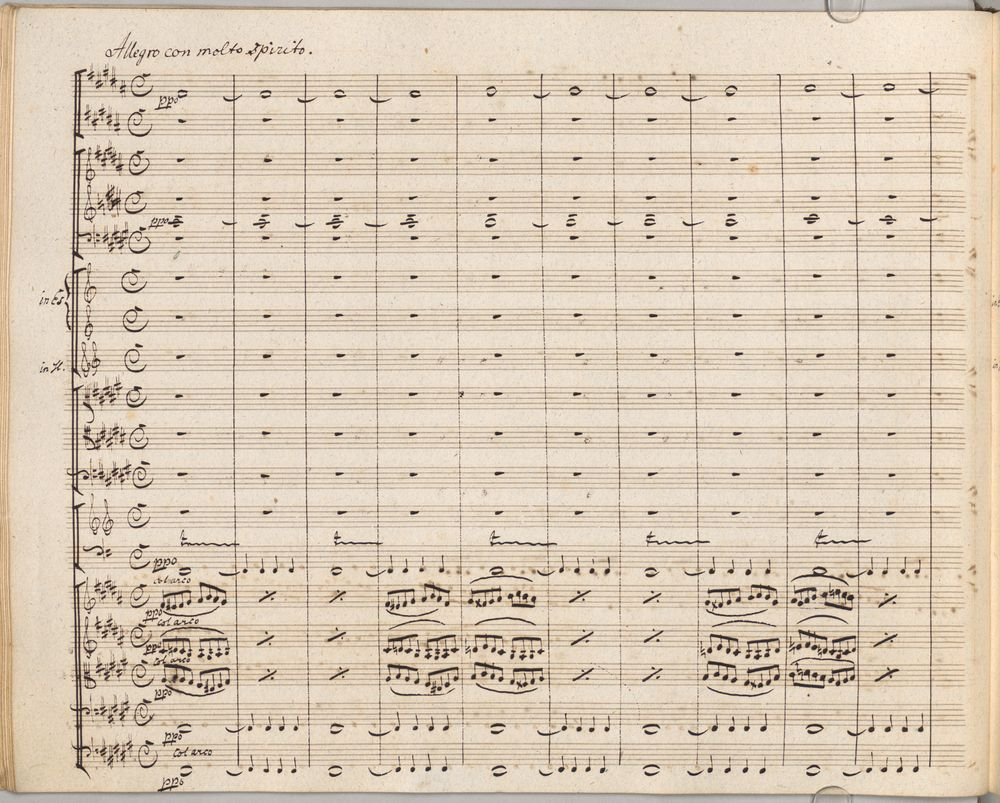 Allegro con molto spirito.
ppo
ppo
in Es
in H.
ppo
col arco
ppo
col arco
ppo
col arco
ppo
ppo
col arco
ppo